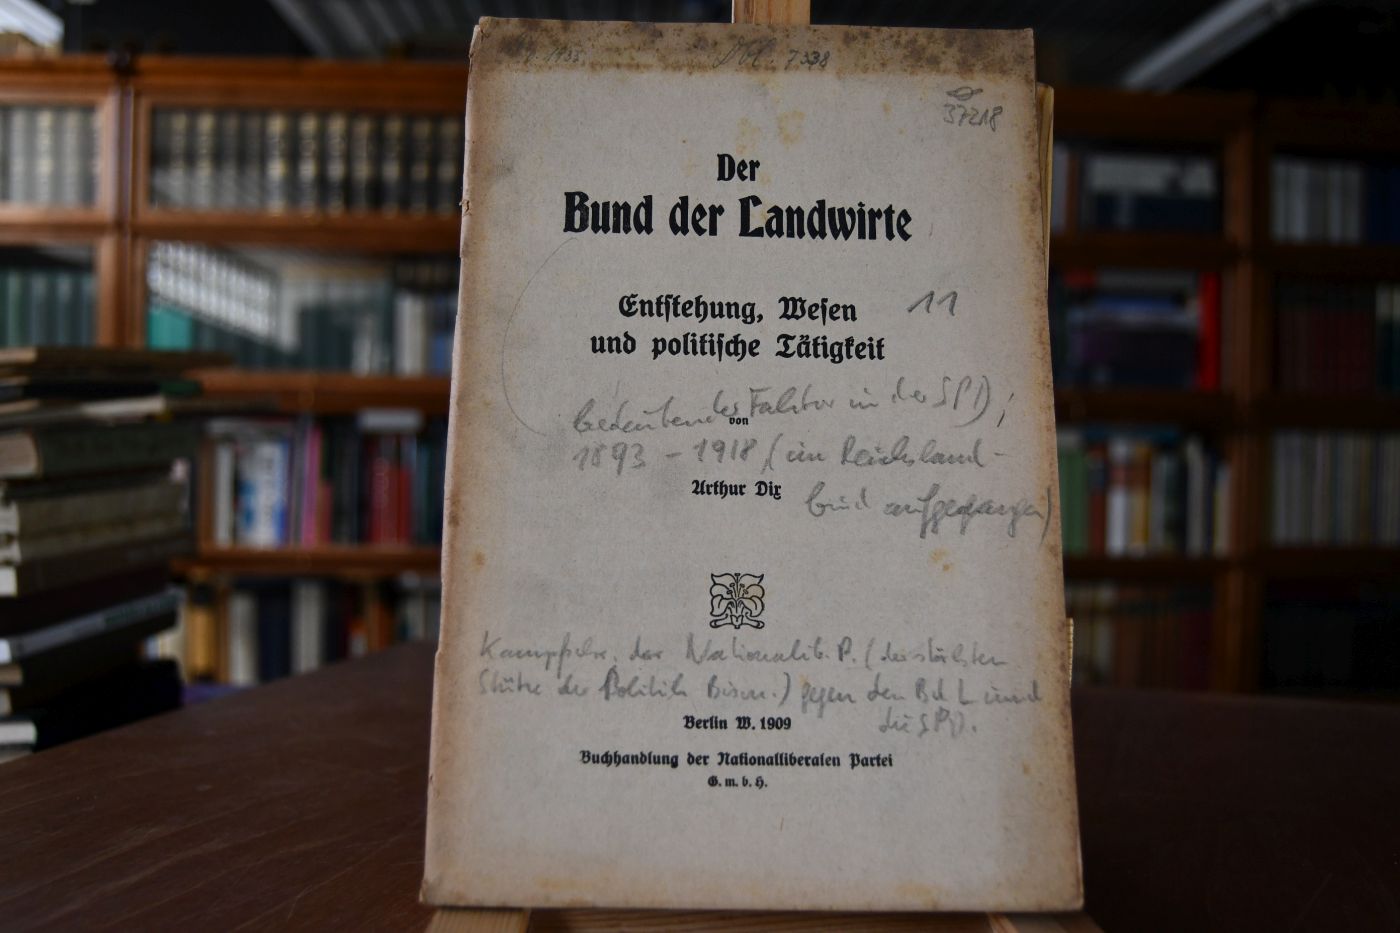 7338
37218
Der
Bund der Landwirte
Entstehung, Wesen
11
und politische Tätigkeit
bedeutender Faktor in der SPD;
von
1893 - 1918 (im Reichsland-
Arthur Dix
bund aufgegangen)
Kampfschr. der Nationallib. P. (der stärksten
Stütze der Politik Bism.) gegen den BdL und
die SPD.
Berlin W. 1909
Buchhandlung der Nationalliberalen Partei
G. m. b. H.